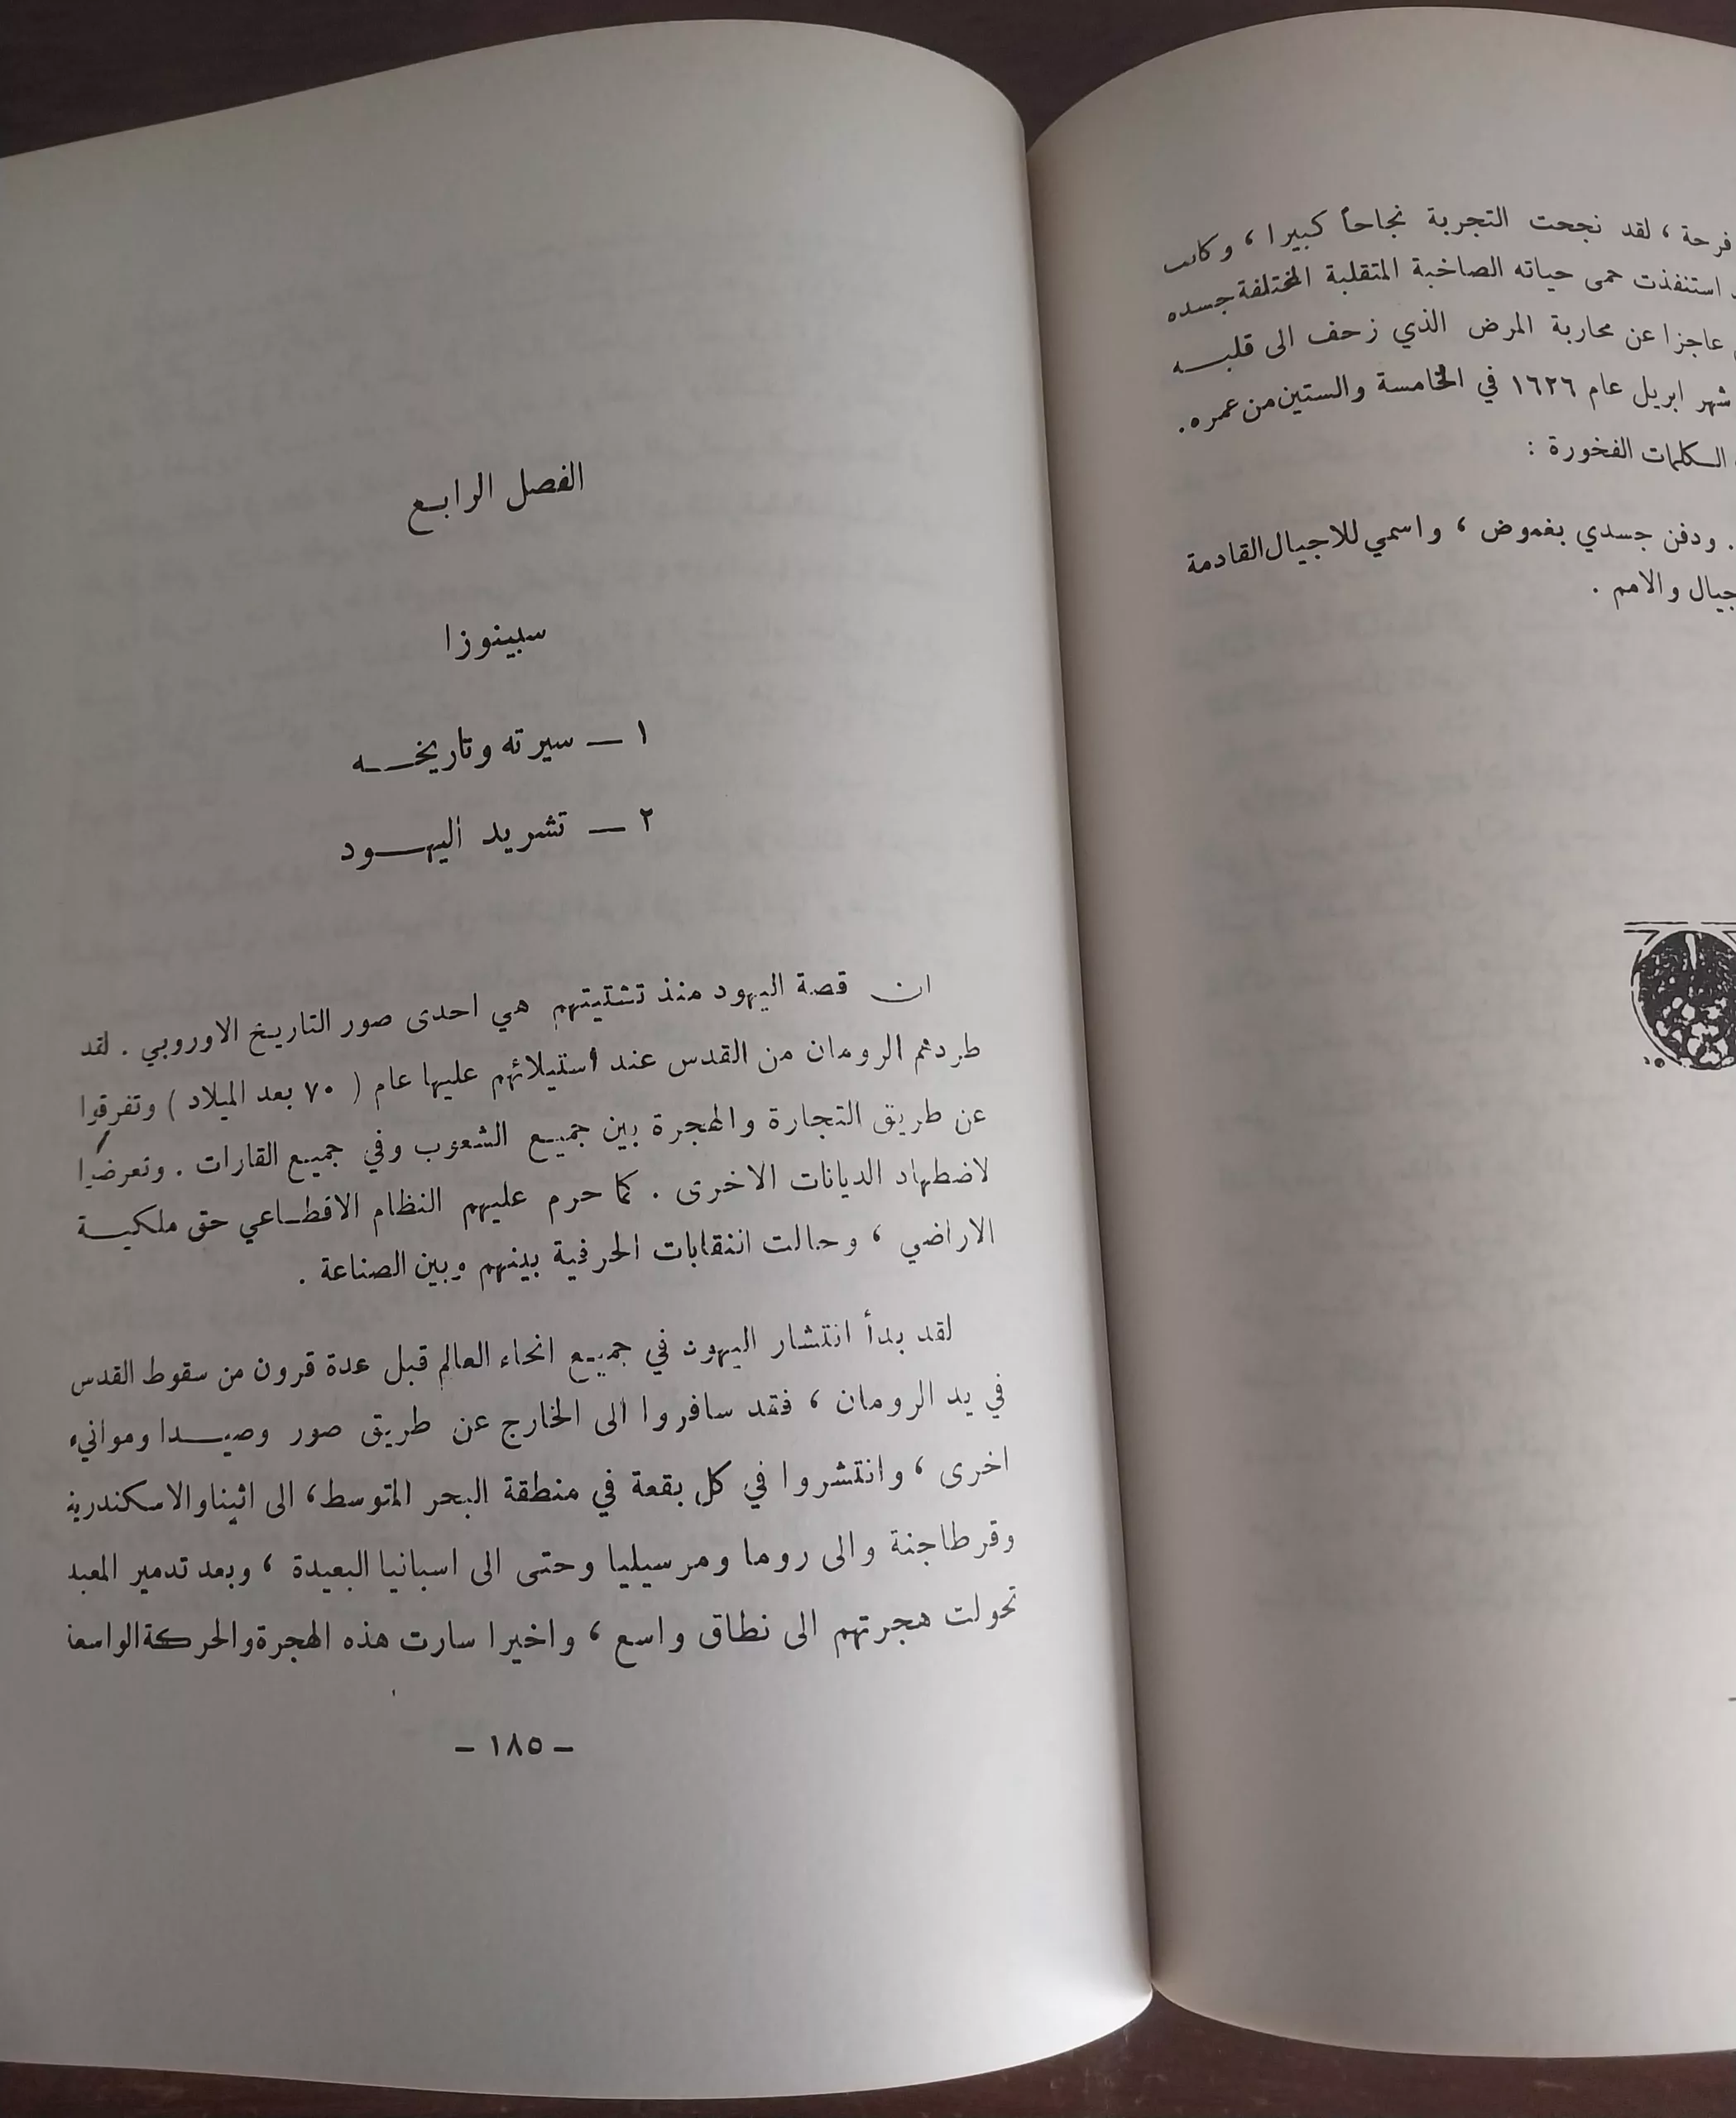 فرحة ، لقد نجحت التجربة نجاحاً كبيرا ، وكانت
استنفذت حمى حياته الصاخبة المتقلبة المختلفة جسده
عاجزا عن محاربة المرض الذي زحف الى قلبــه
شهر ابريل عام ١٦٢٦ في الخامسة والستين من عمره .
الكلمات الفخورة :
. ودفن جسدي بغموض ، واسمي للاجيال القادمة
والامم .
الفصل الرابـع
سبينوزا
١ — سيرته وتاريخــه
٢ — تشريد اليهــود
ان قصة اليهود منذ تشتيتهم هي احدى صور التاريخ الاوروبي . لقد
طردهم الرومان من القدس عند استيلائهم عليها عام ( ٧٠ بعد الميلاد ) وتفرقوا
عن طريق التجارة والهجرة بين جميـع الشعوب وفي جميـع القارات . وتعرضوا
لاضطهاد الديانات الاخرى . كما حرم عليهم النظام الاقطـاعي حق ملكيــة
الاراضي ، وحالت النقابات الحرفية بينهم وبين الصناعة .
لقد بدأ انتشار اليهود في جميـع انحاء العالم قبل عدة قرون من سقوط القدس
في يد الرومان ، فقد سافروا الى الخارج عن طريق صور وصيــدا وموانيء
اخرى ، وانتشروا في كل بقعة في منطقة البحر المتوسط، الى اثينا والاسكندرية
وقرطاجنة والى روما ومرسيليا وحتى الى اسبانيا البعيدة ، وبعد تدمير المعبد
تحولت هجرتهم الى نطاق واسع ، واخيرا سارت هذه الهجرة والحركة الواسعة
– ١٨٥ –